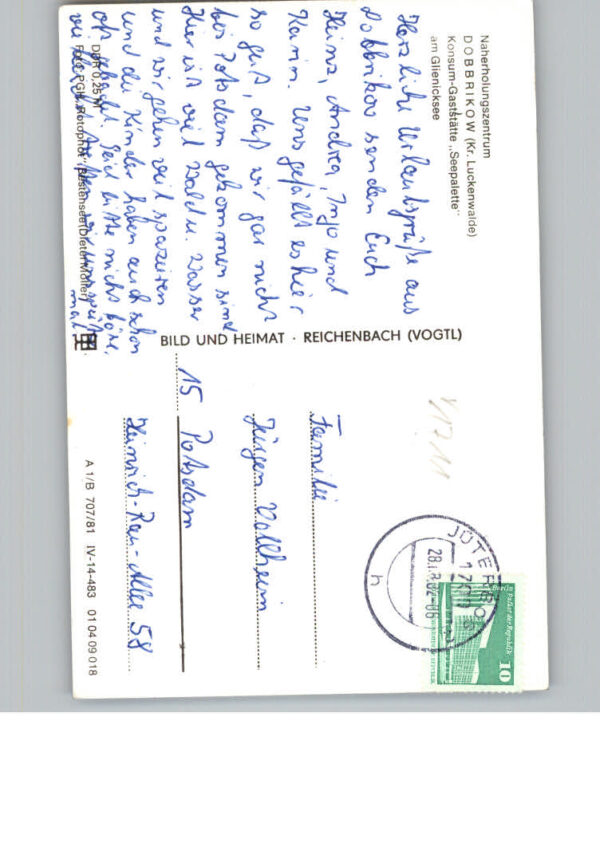 Naherholungszentrum
DOBBRIKOW (Kr. Luckenwalde)
Konsum-Gaststätte „Seepalette"
am Glienicksee
Herzliche Urlaubsgrüße aus
Dobbrikow senden Euch
Heinz, Andrea, Ingo und
Karin. Uns gefällt es hier
so gut, daß wir gar nicht
bis Potsdam gekommen sind
Hier ist viel Wald u. Wasser
und wir gehen viel spazieren
und die Kinder haben auch schon
oft gebadet. Seid bitte nicht böse,
mal
DDR 0,25 M
Foto: PGH „Rotophot" Bestensee (Dieter Möller)
BILD UND HEIMAT · REICHENBACH (VOGTL)
A 1/B 707/81 IV-14-483 01 04 09 018
11711
JÜTERBOG
1700
h
Berlin
Palast der Republik
10
Familie
Jürgen Vollheim
15 Potsdam
Heinrich-Rau-Allee 58